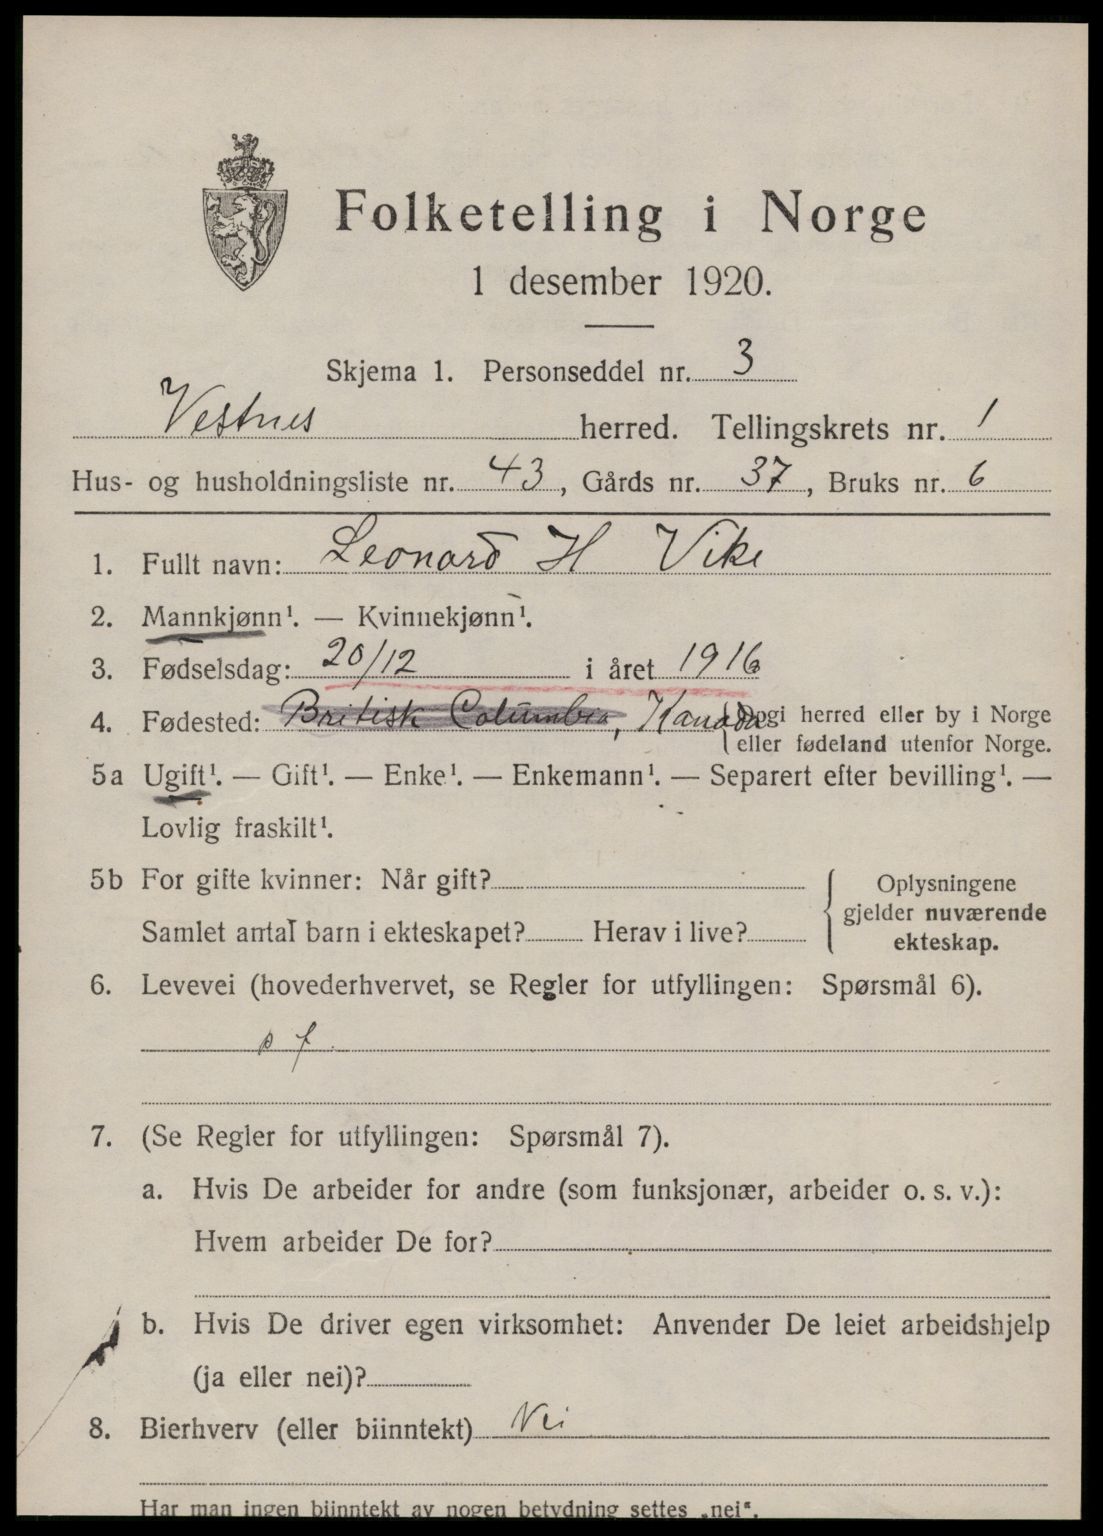 Folketelling i Norge
1 desember 1920.
Skjema 1. Personseddel nr. 3
Vestnes herred. Tellingskrets nr. 1
Hus- og husholdningsliste nr. 43, Gårds nr. 37, Bruks nr. 6
1. Fullt navn: Leonard H Vike
2. Mannkjønn¹. — Kvinnekjønn¹.
3. Fødselsdag: 20/12 i året 1916
4. Fødested: British Columbia, Kanada { Opgi herred eller by i Norge
eller fødeland utenfor Norge.
5a Ugift¹. — Gift¹. — Enke¹. — Enkemann¹. — Separert efter bevilling¹. —
Lovlig fraskilt¹.
5b For gifte kvinner: Når gift?
Samlet antal barn i ekteskapet? Herav i live?
{ Oplysningene
gjelder nuværende
ekteskap.
6. Levevei (hovederhvervet, se Regler for utfyllingen: Spørsmål 6).
s f.
7. (Se Regler for utfyllingen: Spørsmål 7).
a. Hvis De arbeider for andre (som funksjonær, arbeider o. s. v.):
Hvem arbeider De for?
b. Hvis De driver egen virksomhet: Anvender De leiet arbeidshjelp
(ja eller nei)?
8. Bierhverv (eller biinntekt) Nei
Har man ingen biinntekt av nogen betydning settes „nei“.